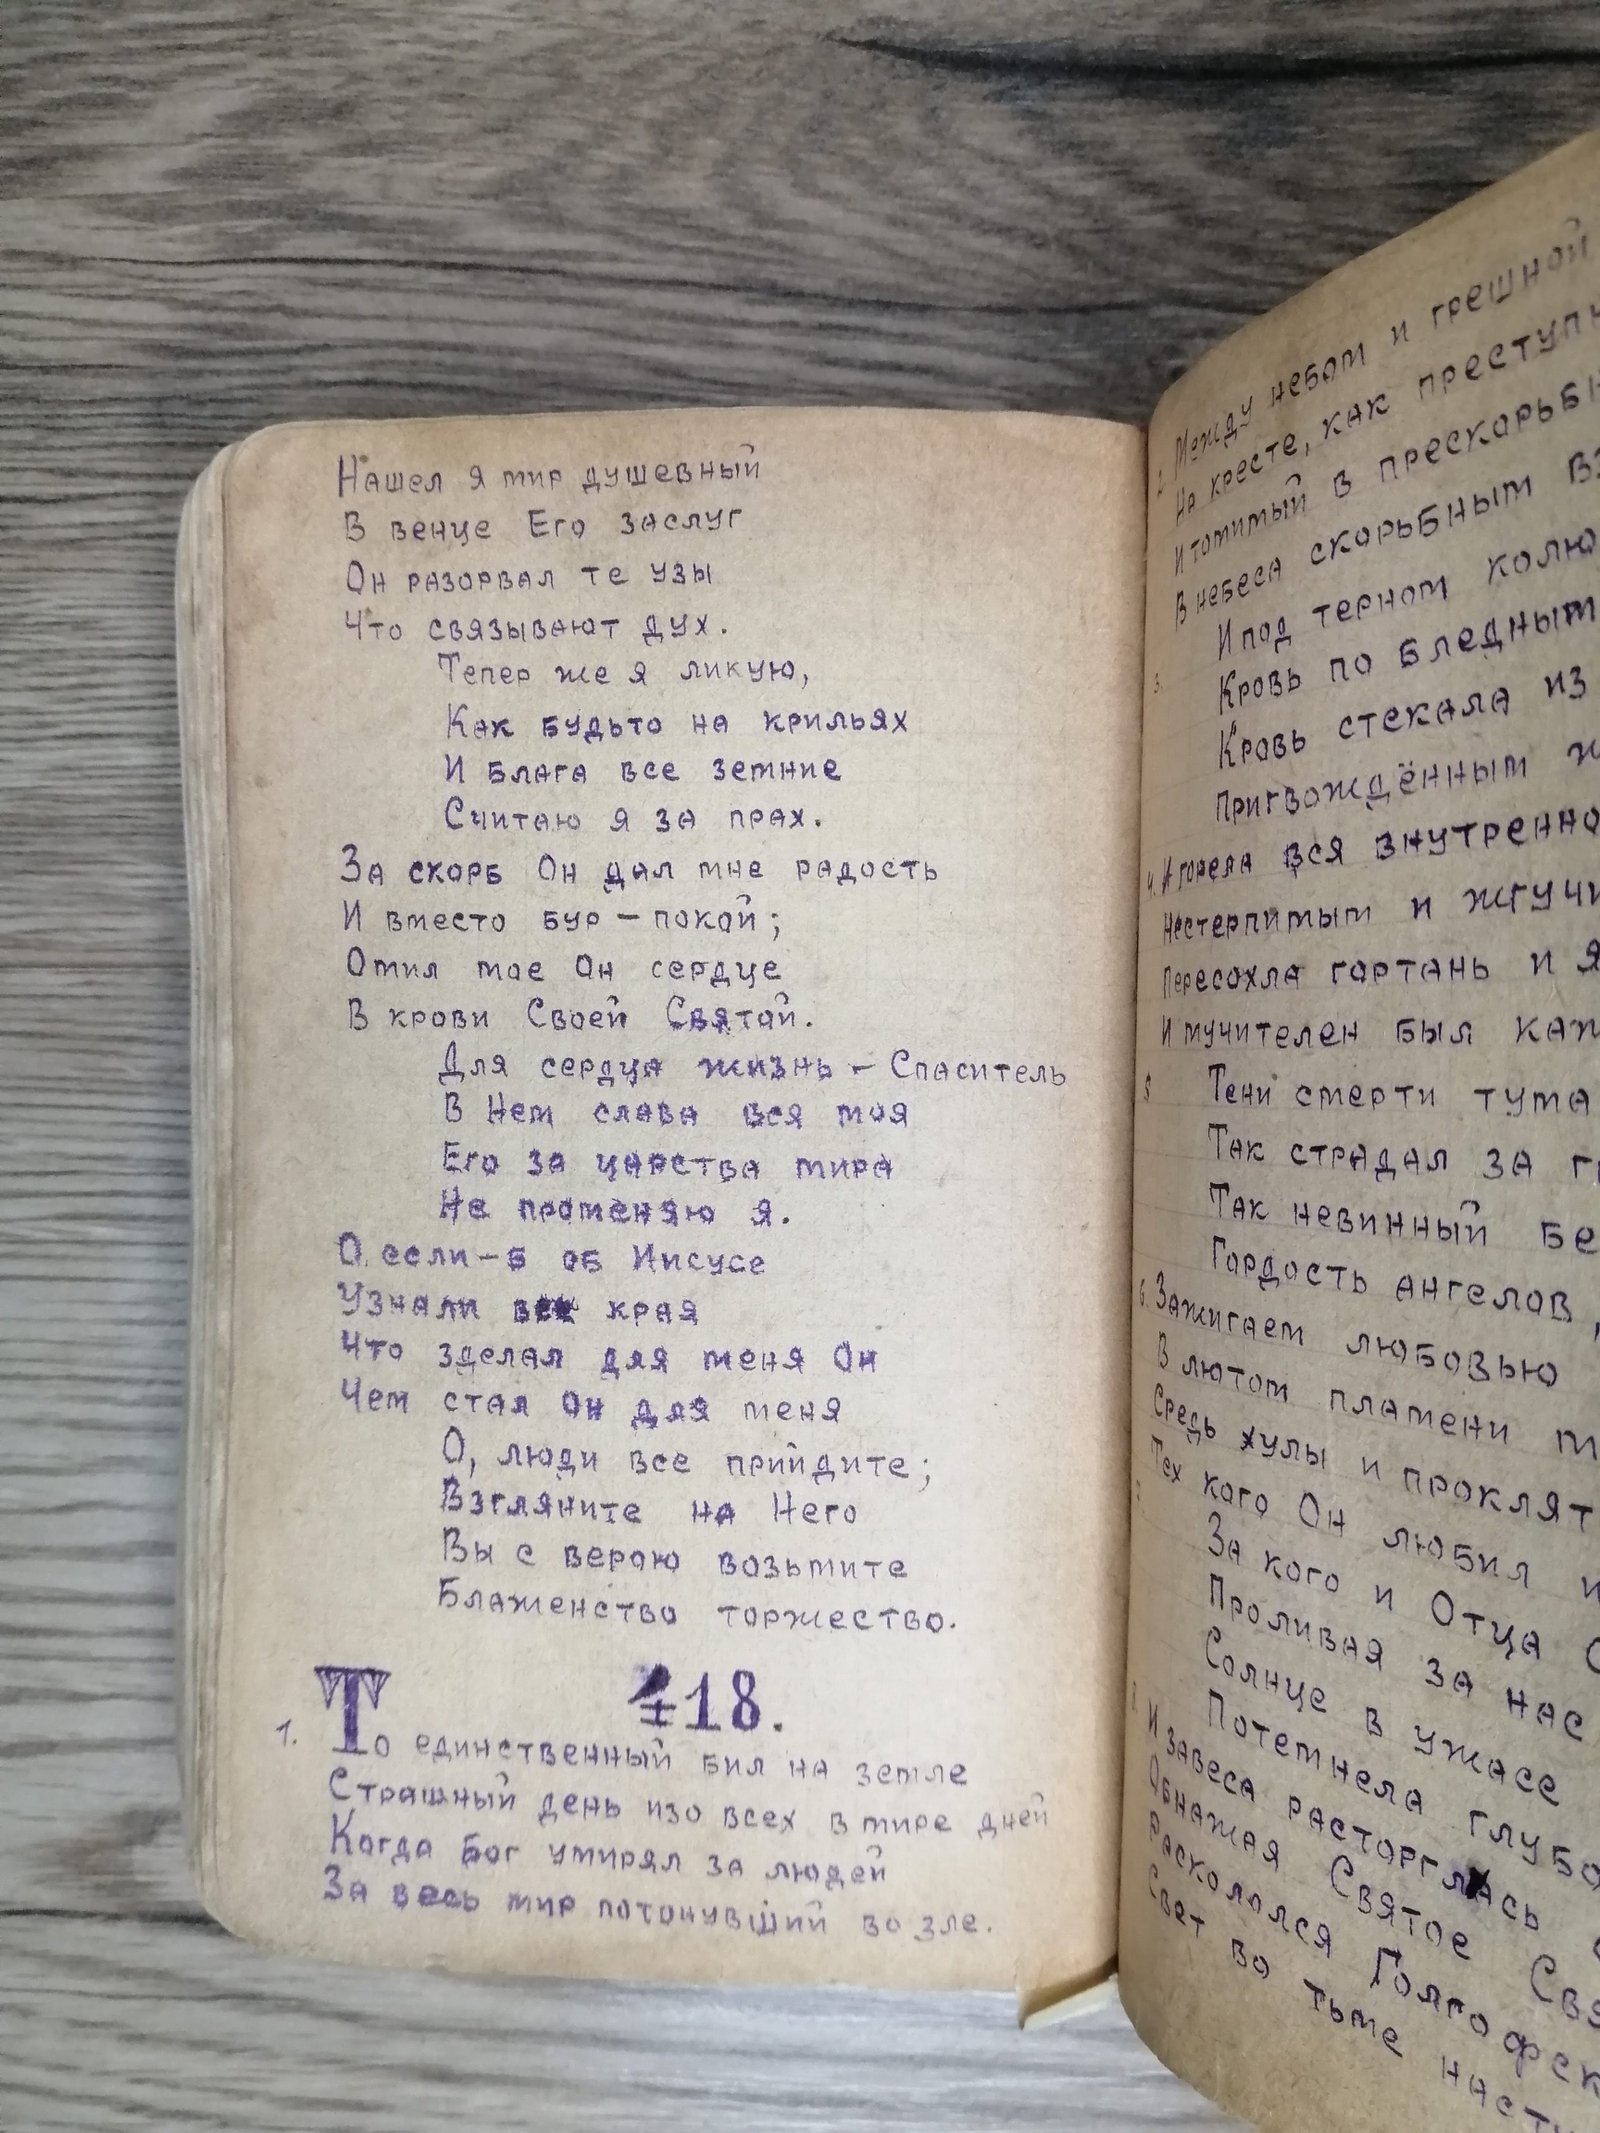 Нашел я мир душевный
В венце Его заслуг
Он разорвал те узы
Что связывают дух.
Тепер же я ликую,
Как будьто на крильях
И блага все земние
Считаю я за прах.
За скорб Он дал мне радость
И вместо бур - покой;
Омил мое Он сердце
В крови Своей Святой.
Для сердца жизнь - Спаситель
В Нем слава вся моя
Его за царства мира
Не променяю я.
О если-б об Иисусе
Узнали все края
Что зделал для меня Он
Чем стал Он для меня
О, люди все прийдите;
Взгляните на Него
Вы с верою возьмите
Блаженство торжество.
18.
1. То единственный бил на земле
Страшный день изо всех в мире дней
Когда Бог умирал за людей
За весь мир потонувший во зле.
2. Между небом и грешной
На кресте, как преступн
И томимый в прескорьбн
В небеса скорьбным вз
3. И под терном колю
Кровь по бледным
Кровь стекала из
Пригвождённым ж
4. И горела вся внутренно
Нестерпимым и жгучи
Пересохла гортань и я
И мучителен был каж
5 Тени смерти тума
Так страдал за гр
Так невинный бе
Гордость ангелов,
6. Зажигаем любовью
В лютом пламени м
Средь хулы и проклят
Тех кого Он любил и
За кого и Отца О
Проливая за нас
Солнце в ужасе
Потемнела глубо
И завеса расторглась
Обнажая Святое Свя
Раскололся Голгофск
Свет во тьме насту